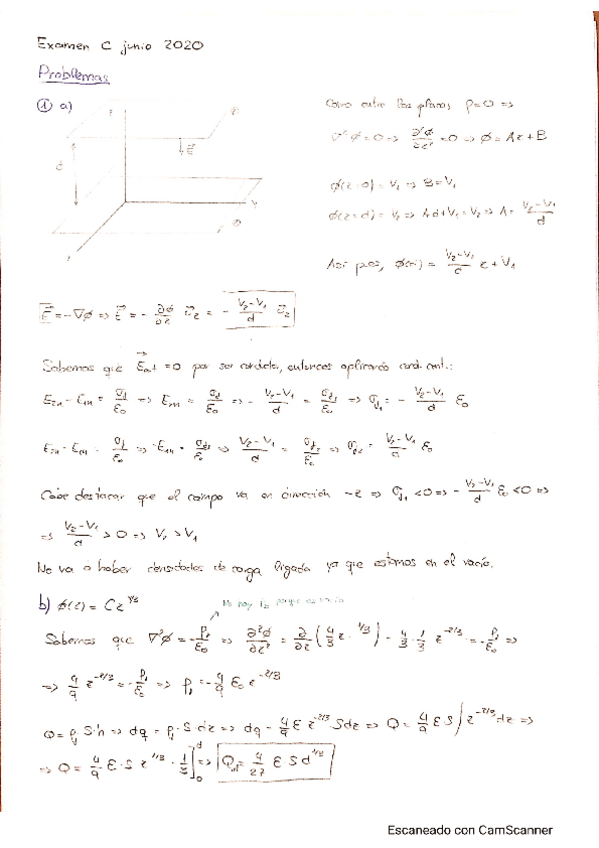 Examen C junio 2020
Problemas
① a)
Como entre los planos ρ=0 =>
∇²φ=0 => ∂²φ/∂z² =0 => φ=Az+B
φ(z=0)=V₁ => B=V₁
φ(z=d)=V₂ => Ad+V₁=V₂ => A= (V₂-V₁)/d
Así pues, φ(z) = (V₂-V₁)/d z + V₁
d
E
y
E=-∇φ => E = - ∂φ/∂z u_z = - (V₂-V₁)/d u_z
Sabemos que E_int =0 por ser conductor, entonces aplicando cond. cont.:
E₂n - E₁n = σ_f/ε₀ => E₂n = σ_f/ε₀ => - (V₂-V₁)/d = σ_f₁/ε₀ => σ_f₁ = - (V₂-V₁)/d ε₀
E₂n - E₁n = σ_f/ε₀ => -E₁n = σ_f₂/ε₀ => (V₂-V₁)/d = σ_f₂/ε₀ => σ_f₂ = (V₂-V₁)/d ε₀
Cabe destacar que el campo va en dirección -z => σ_f₁ <0 => - (V₂-V₁)/d ε₀ <0 =>
=> (V₂-V₁)/d > 0 => V₂ > V₁
No va a haber densidades de carga ligada ya que estamos en el vacío.
b) φ(z) = Cz^4/3
No hay porque vacío
Sabemos que ∇²φ=-ρ_f/ε₀ => ∂²φ/∂z² = ∂/∂z (4/3 z^1/3) = 4/3 · 1/3 z^-2/3 = -ρ_f/ε₀ =>
=> 4/9 z^-2/3 = -ρ_f/ε₀ => ρ_f = -4/9 ε₀ z^-2/3
Q=ρ_f S·h => dq = ρ_f · S·dz => dq = 4/9 ε z^-2/3 S dz => Q = 4/9 ε S ∫ z^-2/3 dz =>
=> Q = 4/9 ε·S z^1/3 · 1/3 ]₀^d => Q = 4/27 ε S d^1/3
Escaneado con CamScanner